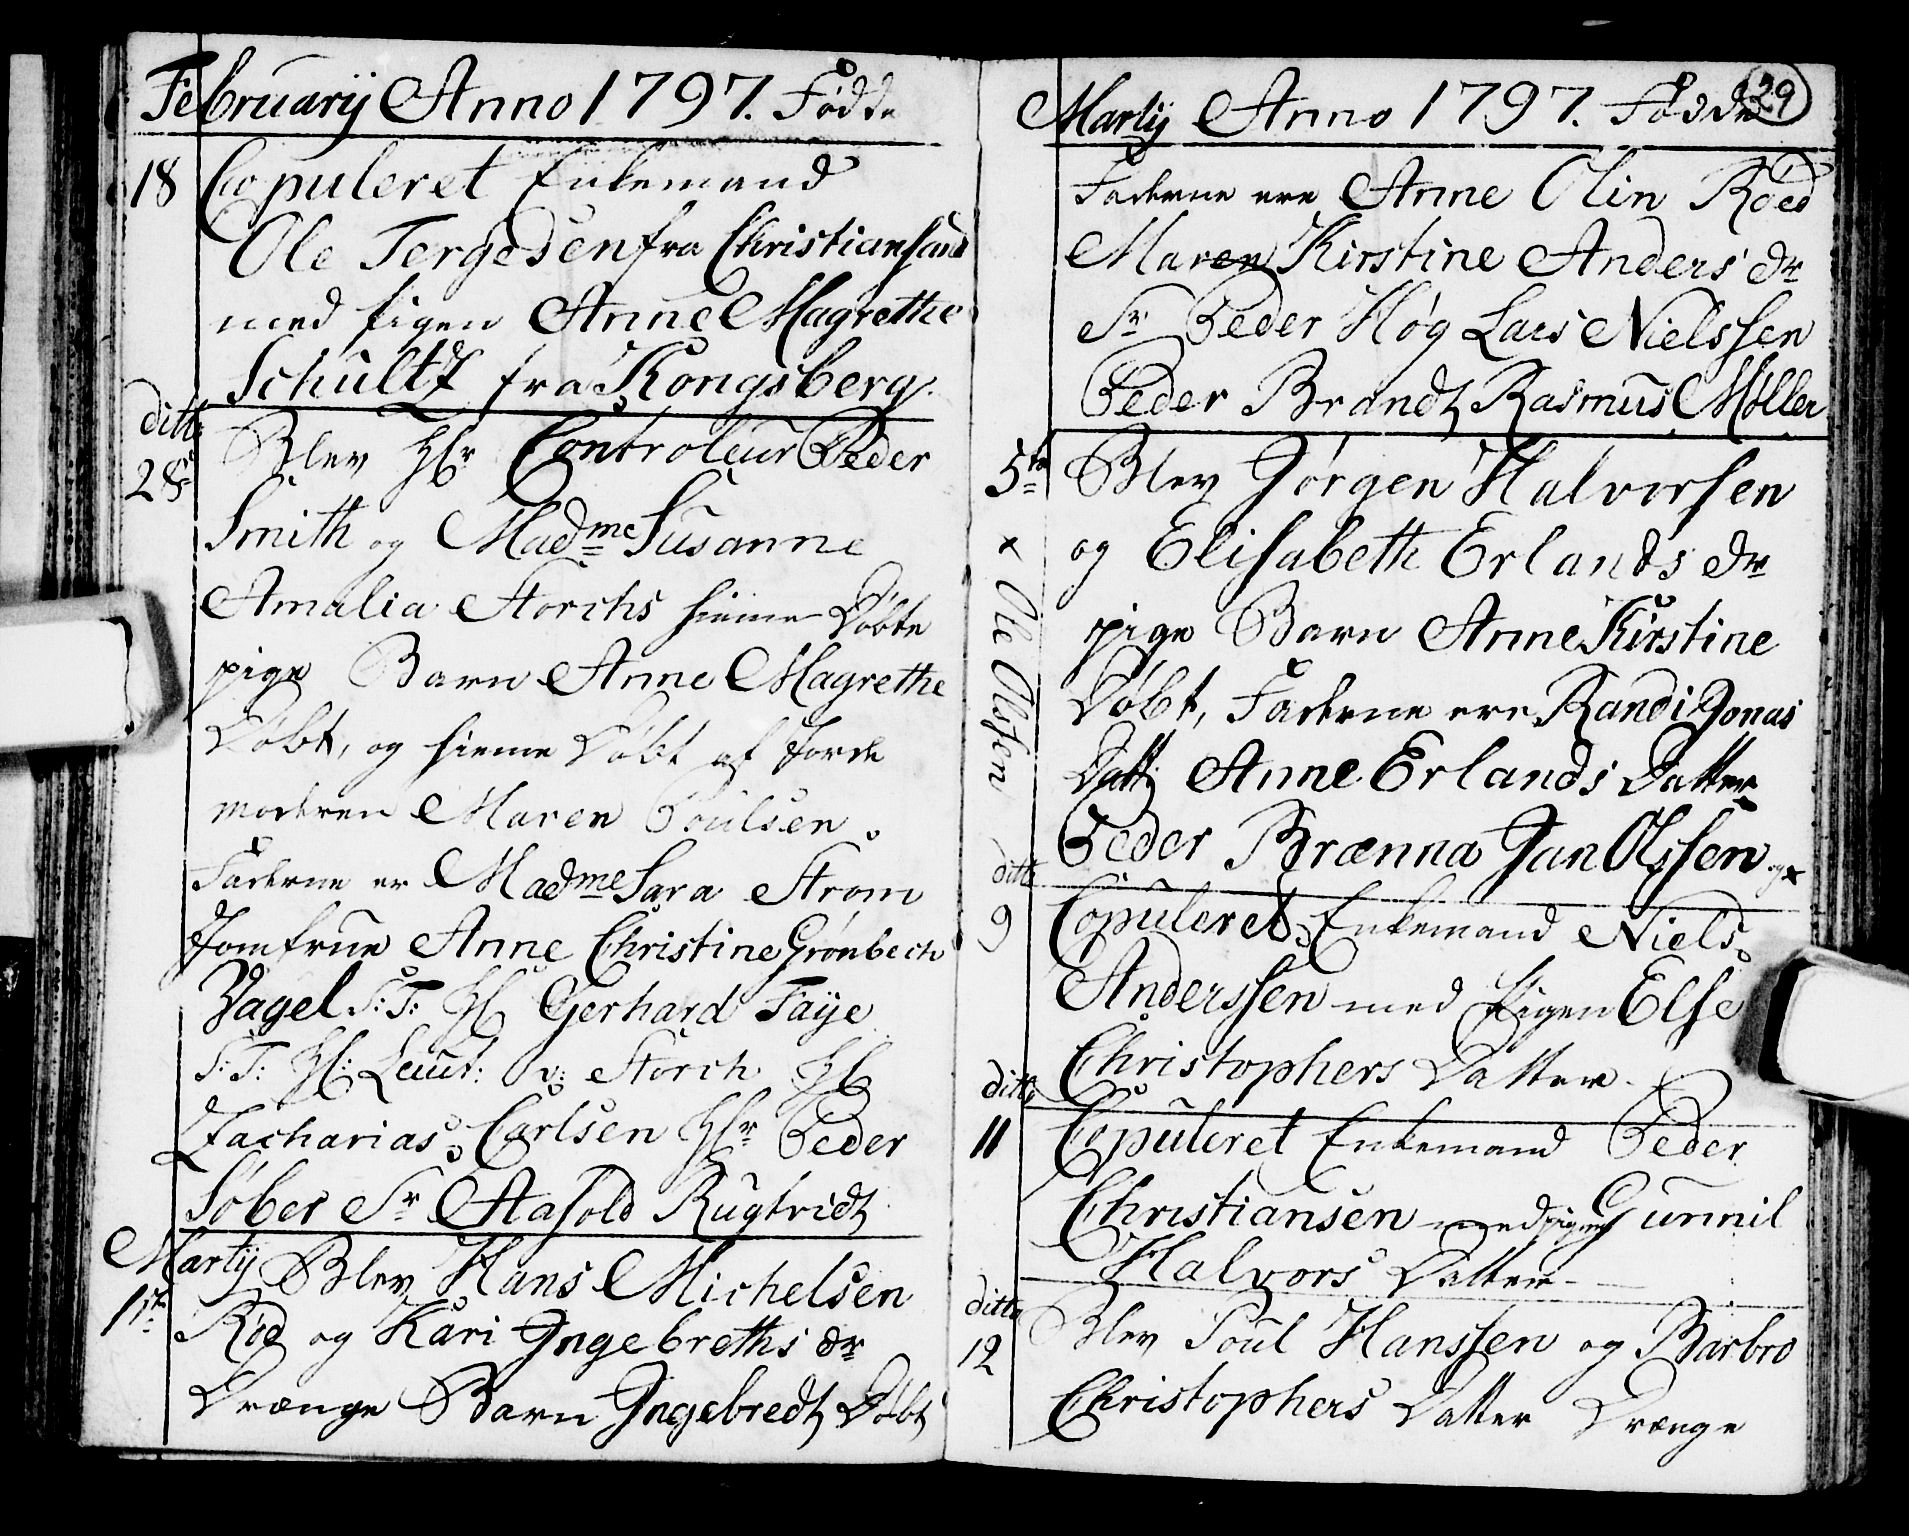 Februarij Anno 1797. Fødde
18 Copuleret Enkemand
Ole Tergesen fra Christiansand
med Pigen Anne Magrethe
Schultz fra Kongsberg.
ditto
28 Blev Hr Controleur Peder
Smith og Madme Susanne
Amalia Storchs hieme Døbte
pige Barn Anne Magrethe
Døbt, og hieme Døbt af Jorde
moderen Maren Poulsen.
Faderne er Madme Sara Strøm
Jomfrue Anne Christine Grønbech
Vagel S:T: Hr Gerhard Faÿe
S:T: Hr: Leiut: v: Storch Hr
Zacharias Carlsen Hr Peder
Søber Sr Stasold Rugtvidt
Martij
1ste Blev Hans Michelsen
Rød og Kari Ingebreths dr
Drænge Barn Ingebredt Døbt
Martij Anno 1797. Fødde 29
Faderne ere Anne Olin Røed
Maren Kirstine Anders dr
Sr Peder Høg Lars Nielssen
Peder Brandt Rasmus Møller
5te Blev Jørgen Halvorsen
og Elisabeth Erlands dr
pige Barn Anne Kirstine
Døbt, Faderne ere Randi Jonas
Datt: Anne Erlands Datter
Peder Brænna Jan Olssen og x
x Ole Olssen
ditto
9 Copuleret Enkemand Niels
Anderssen med Pigen Else
Christophers Datter.
ditto
11 Copuleret Enkemand Peder
Christiansen med pigen Gunnil
Halvors Datter
ditto
12 Blev Poul Hanssen og Barbro
Christophers Datter Drænge